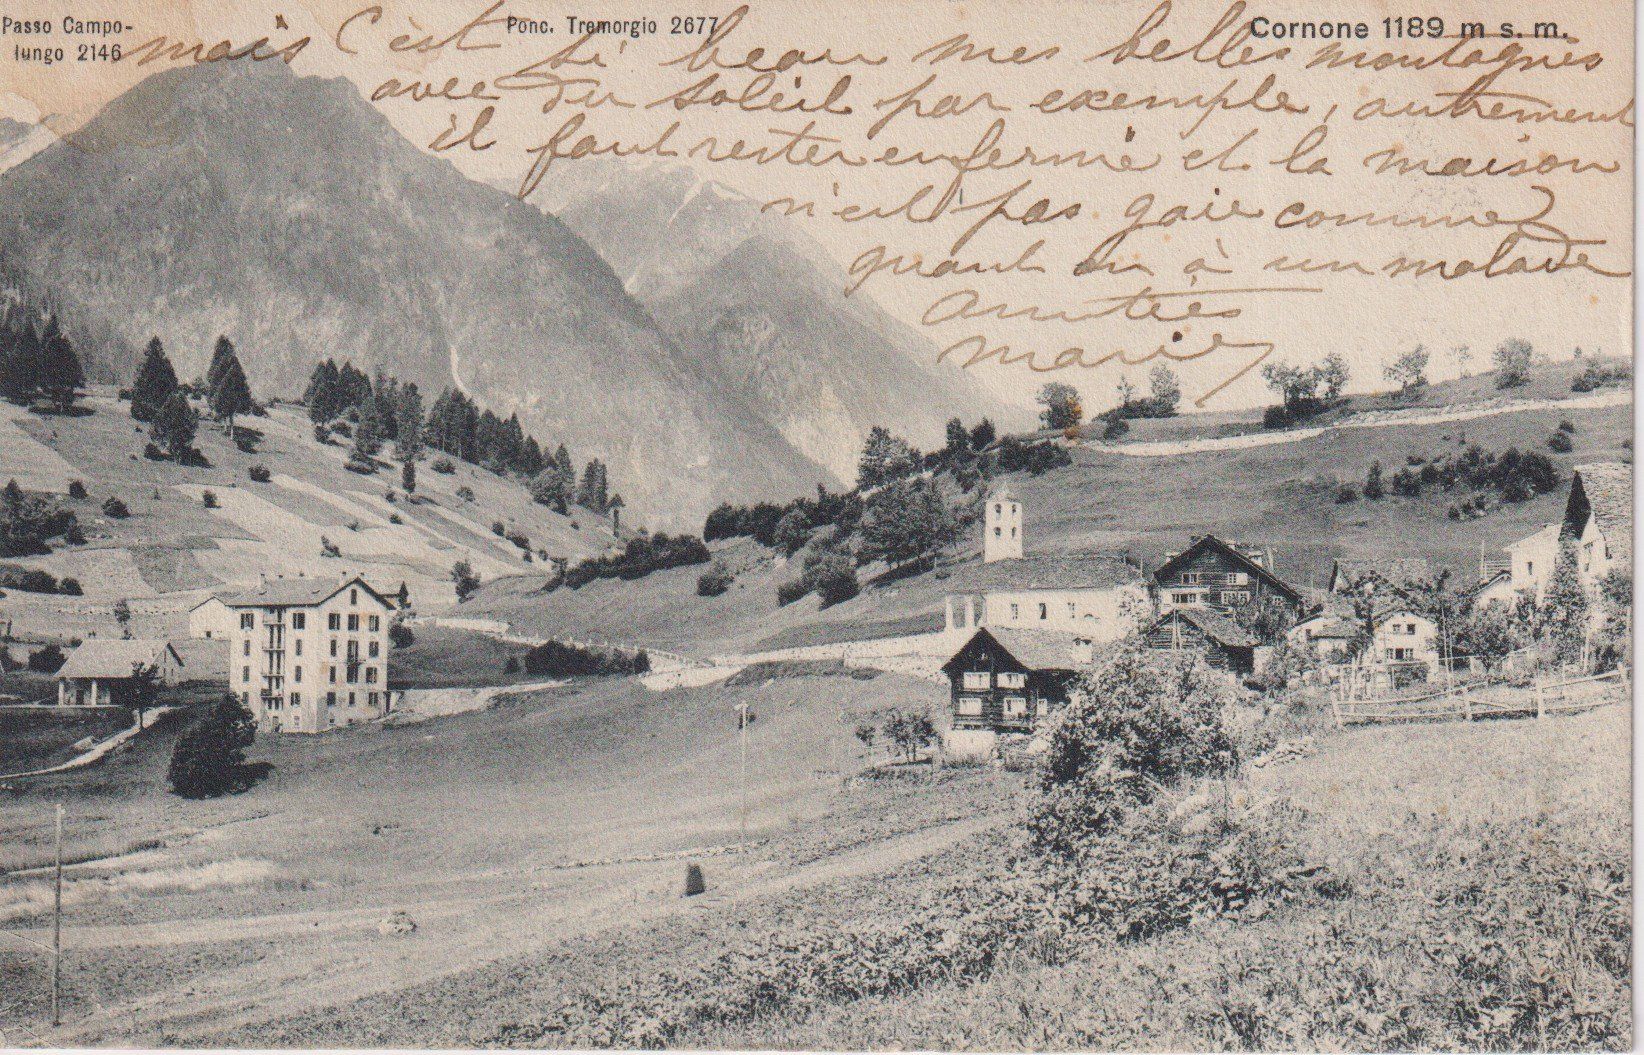 Passo Campo-
lungo 2146
Ponc. Tremorgio 2677
Cornone 1189 m s. m.
mais c'est si beau mes belles montagnes
avec du soleil par exemple, autrement
il faut rester enfermé et la maison
n'est pas gaie comme
quant on à un malade
Amitiés
Marie